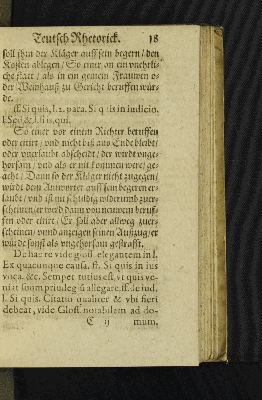 Teutsch Rhetorick. 18
soll ihm der Kläger auff sein begern / den
Kosten ablegen / So einer an ein vnehrli-
che statt / als in ein gemein Frauwen o-
der Weinhauß zu Gericht beruffen wür-
de.
ff. Si quis, l. 2. para. Si quis in iudicio,
l. Sed & l. si is, qui.
So einer vor einem Richter beruffen
oder citirt / vnd nicht biß ans Ende bleibt /
oder vnerlaubt abscheidt / der werdt vnge-
horsam / vnd als er nit kommen were / ge-
acht / Dann so der Kläger nicht zugegen /
wirdt dem Antworter auff sein begeren er-
laubt / vnd ist nit schuldig widerumb zuer-
scheinen / er werd dann von neuwem beruf-
fen oder citirt. Er soll aber allweg zuer-
scheinen / vnnd anzeigen seinen Außzug / er
würde sonst als vngehorsam gestrafft.
De hac re vide gloss. elegantem in l.
Ex quacunque causa. ff. Si quis in ius
voca. &c. Semper totius est, vt quis ve-
niat suum priuilegiũ allegare. ff. de iud.
l. Si quis. Citatus qualiter & vbi fieri
debeat, vide Gloss. notabilem ad do-
C ij mum,